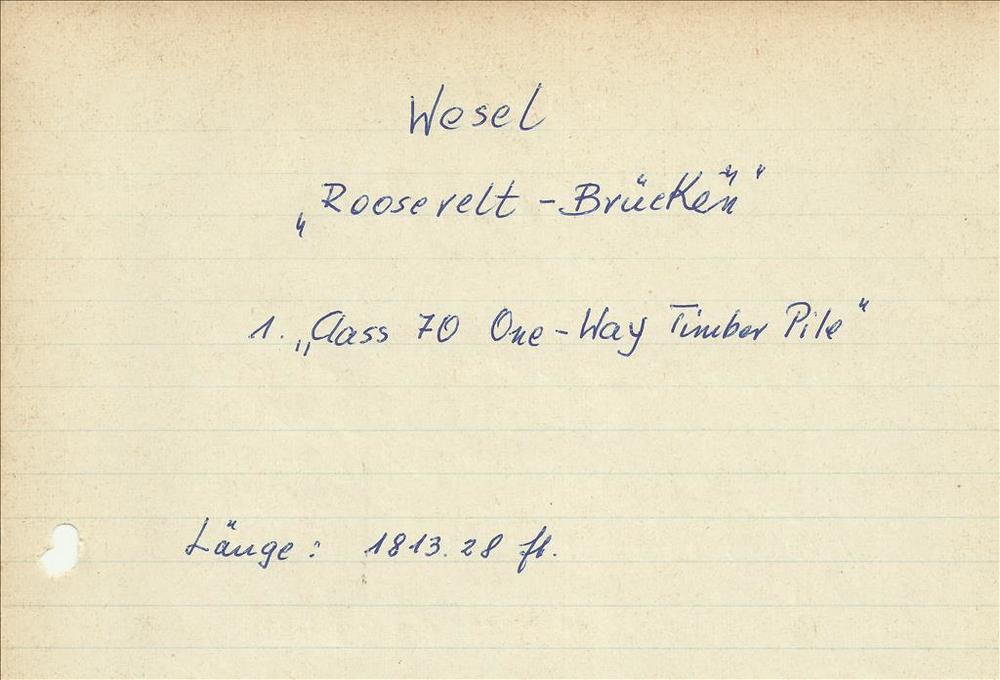 Wesel
„Roosevelt-Brücken"
1. „Class 70 One-Way Timber Pile"
Länge: 1813.28 ft.